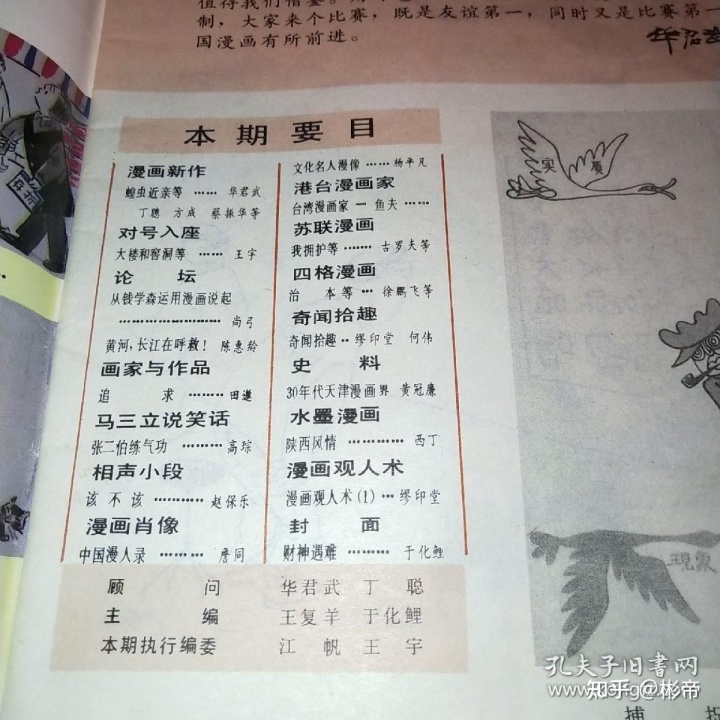 值得我们借鉴。
制，大家来个比赛，既是友谊第一，同时又是比赛第一
国漫画有所前进。
华君武
本期要目
漫画新作
蝗虫近亲等……华君武
丁聪 方成 蔡振华等
对号入座
大楼和窑洞等……王宇
论坛
从钱学森运用漫画说起
………………尚弓
黄河，长江在呼救！陈惠龄
画家与作品
追求………田遨
马三立说笑话
张二伯练气功………高琮
相声小段
该不该…………赵保乐
漫画肖像
中国漫人录………詹同
文化名人漫像……杨平凡
港台漫画家
台湾漫画家一鱼夫……
苏联漫画
我拥护等……古罗夫等
四格漫画
治本等…徐鹏飞等
奇闻拾趣
奇闻拾趣··缪印堂 何伟
史料
30年代天津漫画界 黄冠廉
水墨漫画
陕西风情………西丁
漫画观人术
漫画观人术(1)…缪印堂
封面
财神遇难………于化鲤
顾问 华君武 丁聪
主编 王复羊 于化鲤
本期执行编委 江帆 王宇
实质
现象
捕
孔夫子旧书网
知乎 @彬帝